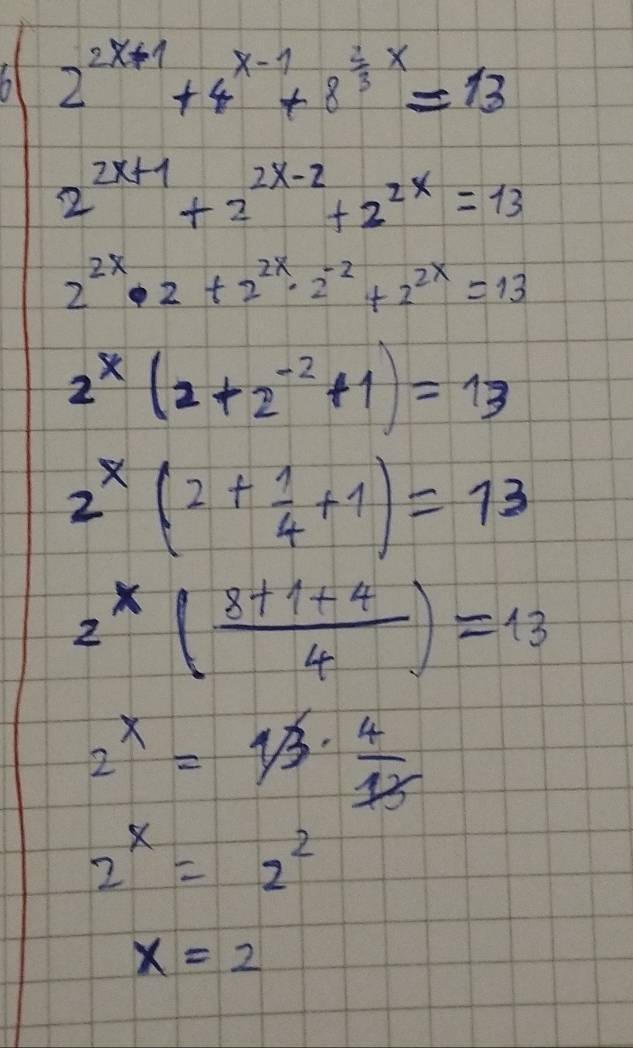 2^{2x+1} + 4^{x-1} + 8^{\frac{2}{3}x} = 13
2^{2x+1} + 2^{2x-2} + 2^{2x} = 13
2^{2x} · 2 + 2^{2x} · 2^{-2} + 2^{2x} = 13
2^x (2 + 2^{-2} + 1) = 13
2^x (2 + \frac{1}{4} + 1) = 13
2^x (\frac{8+1+4}{4}) = 13
2^x = 13 · \frac{4}{13}
2^x = 2^2
x = 2